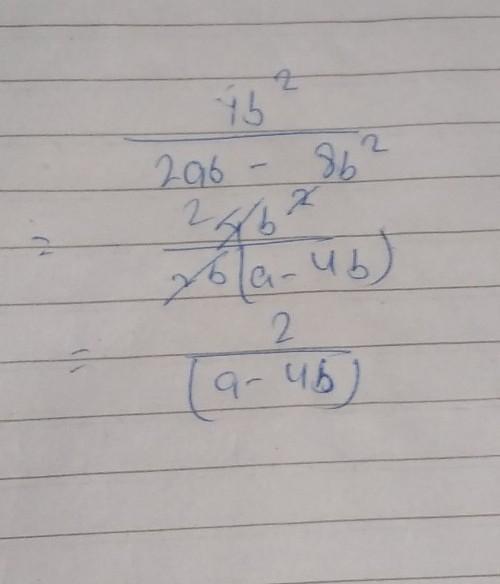 4b²
2ab - 8b²
= 2 4b²
2b(a-4b)
= 2
(a-4b)